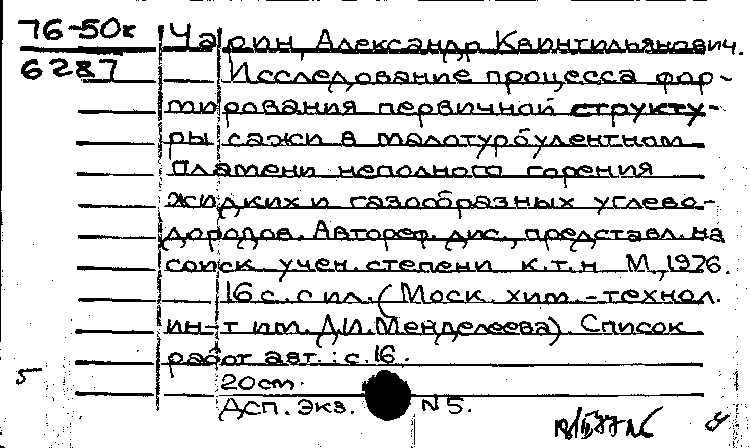 76-50к
6287
Чарин, Александр Квинтильянович.
Исследование процесса фор-
мирования первичной структу-
ры сажи в малотурбулентном
пламени неполного горения
жидких и газообразных углево-
дородов. Автореф. дис., представл. на
соиск. учен. степени к.т.н М., 1976.
16 с. с ил. (Моск. хим.-технол.
ин-т им. Д.И. Менделеева). Список
работ авт.: с. 16.
5
20 см.
Дсп. Экз. N 5.